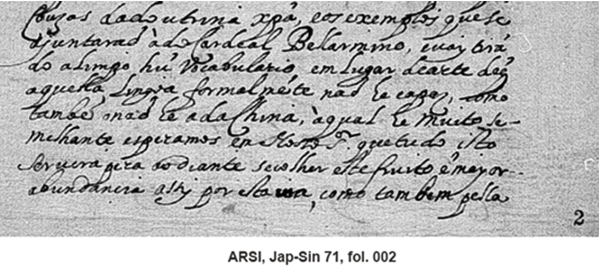 Couzas dadoutrina xpã, eos exemplos que se
ajuntaraõ àdo Cardeal Bellarmino, evay tirã
do alimpo hũ Vocabulario, em lugar dearte deq̃
aquella lingoa formalmẽte naõ he capaz, como
tambẽ onaõ he adaChina, àqual he muito se-
melhante esperamos em Nosso Sr. que tudo isto
servira pera aodiante secolher este fruito, ẽ mayor
abundancia assy por esta via, como tambem pella
2
ARSI, Jap-Sin 71, fol. 002